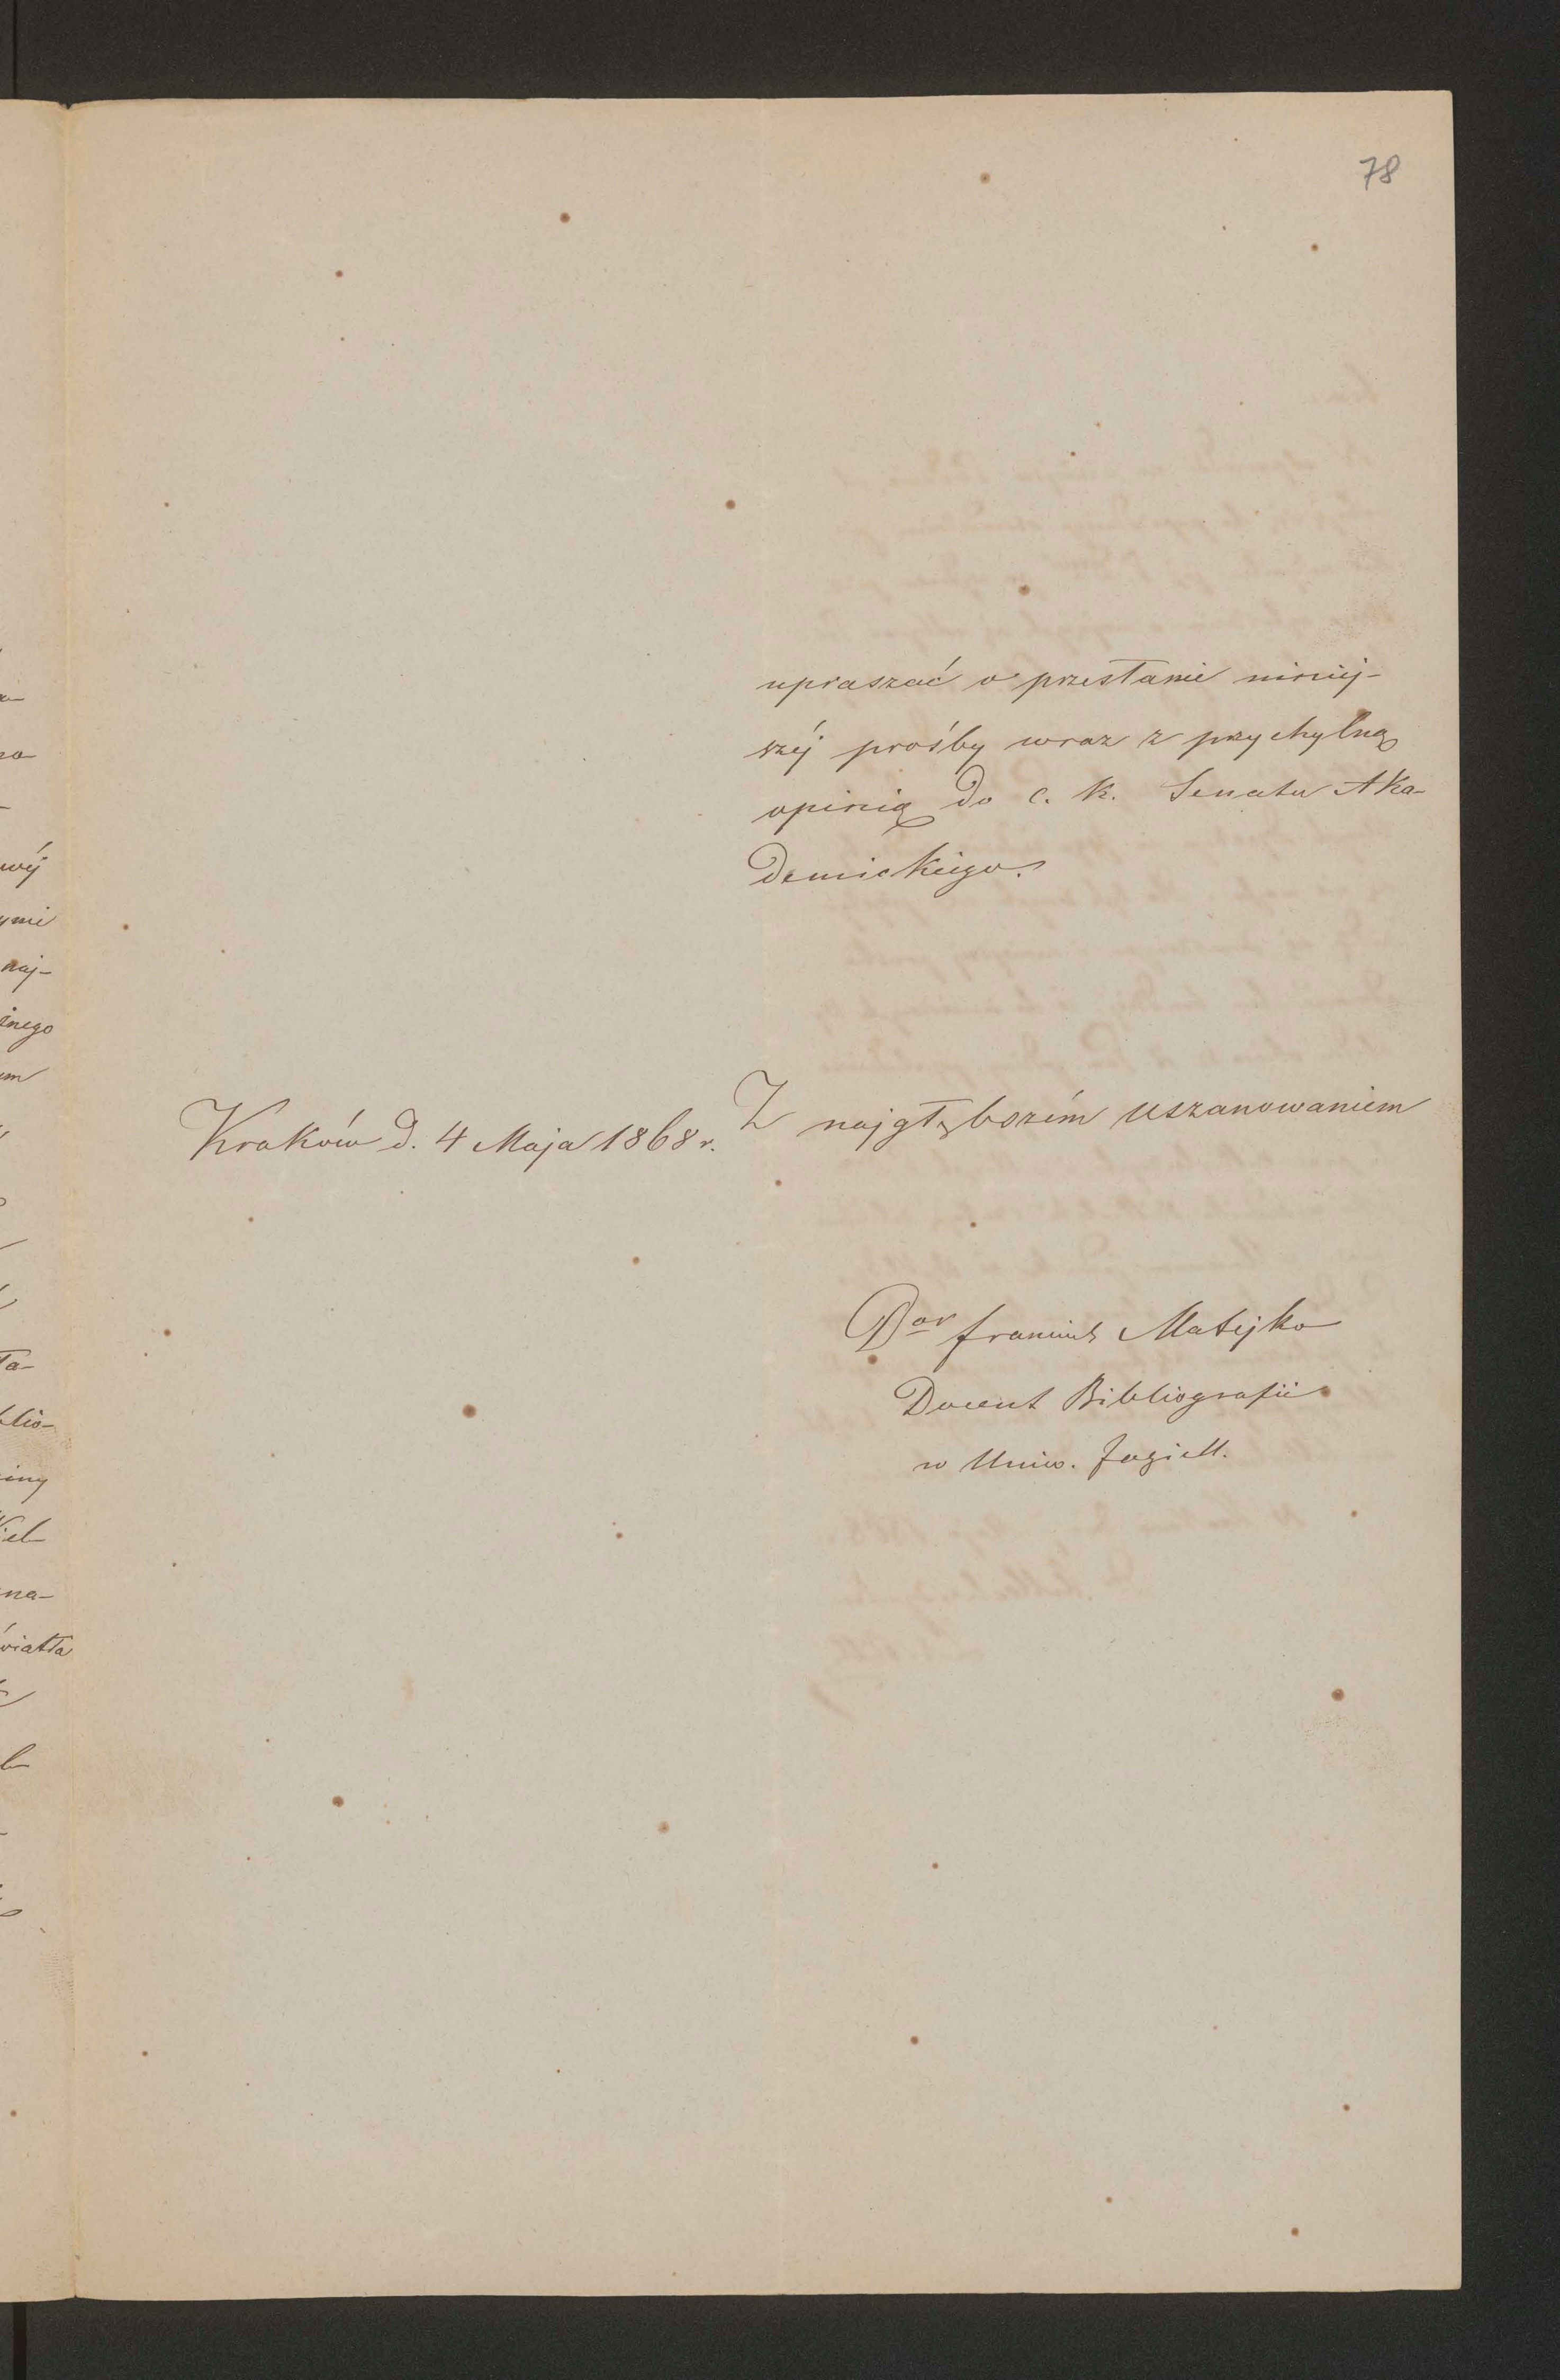 78
upraszać o przesłanie niniéj-
széj prośby wraz z przychylną
opinią do c. k. Senatu Aka-
demickiego.
Kraków d. 4 Maja 1868 r.
Z najgłębszém uszanowaniem
Dor Franciszek Matejko
Docent Bibliografii
w Uniw. Jagiell.
wéj
ymi
naj-
żnego
em
ła-
blio-
iny
iel
na-
wiatła